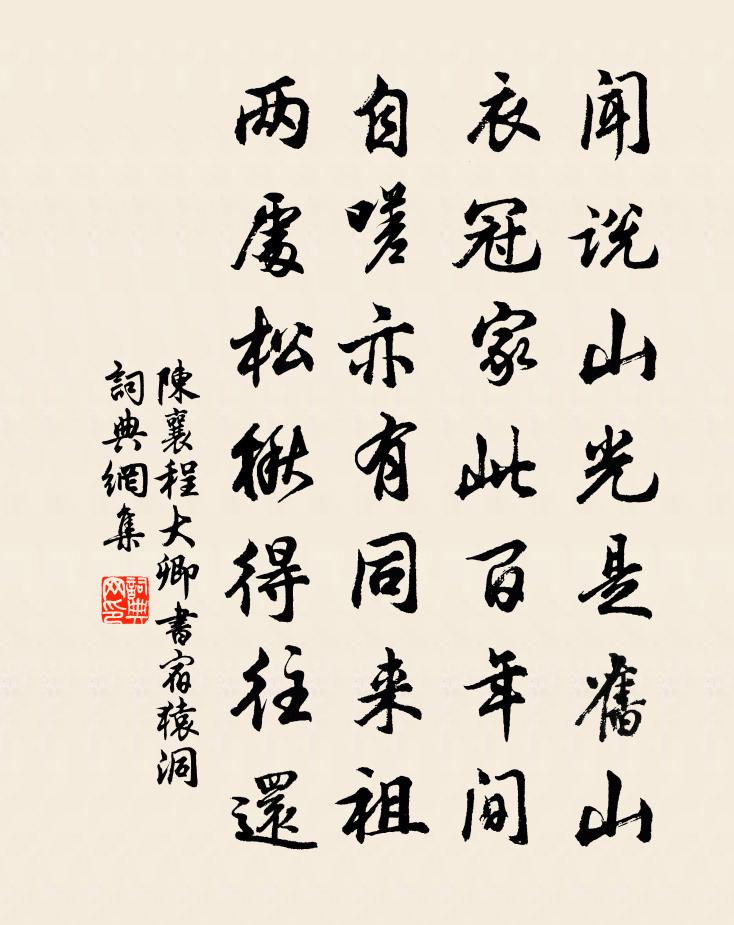 闻说山光是舊山
衣冠家此百年间
自嗟亦有同来祖
两處松楸得往還
陳襄程大卿書宿猿洞
詞典網集
詞典网印